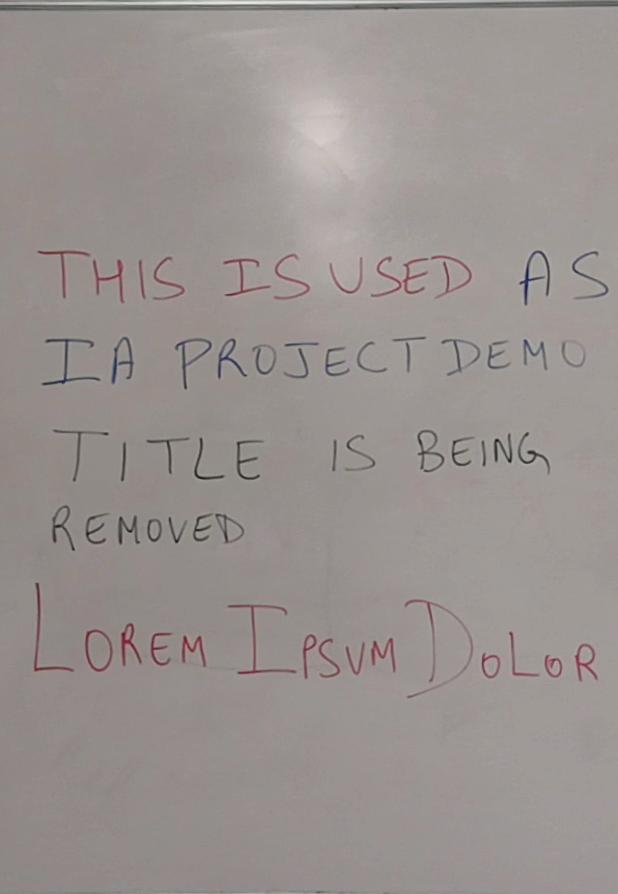 THIS IS USED AS
IA PROJECT DEMO
TITLE IS BEING
REMOVED
LOREM IPSUM DOLOR